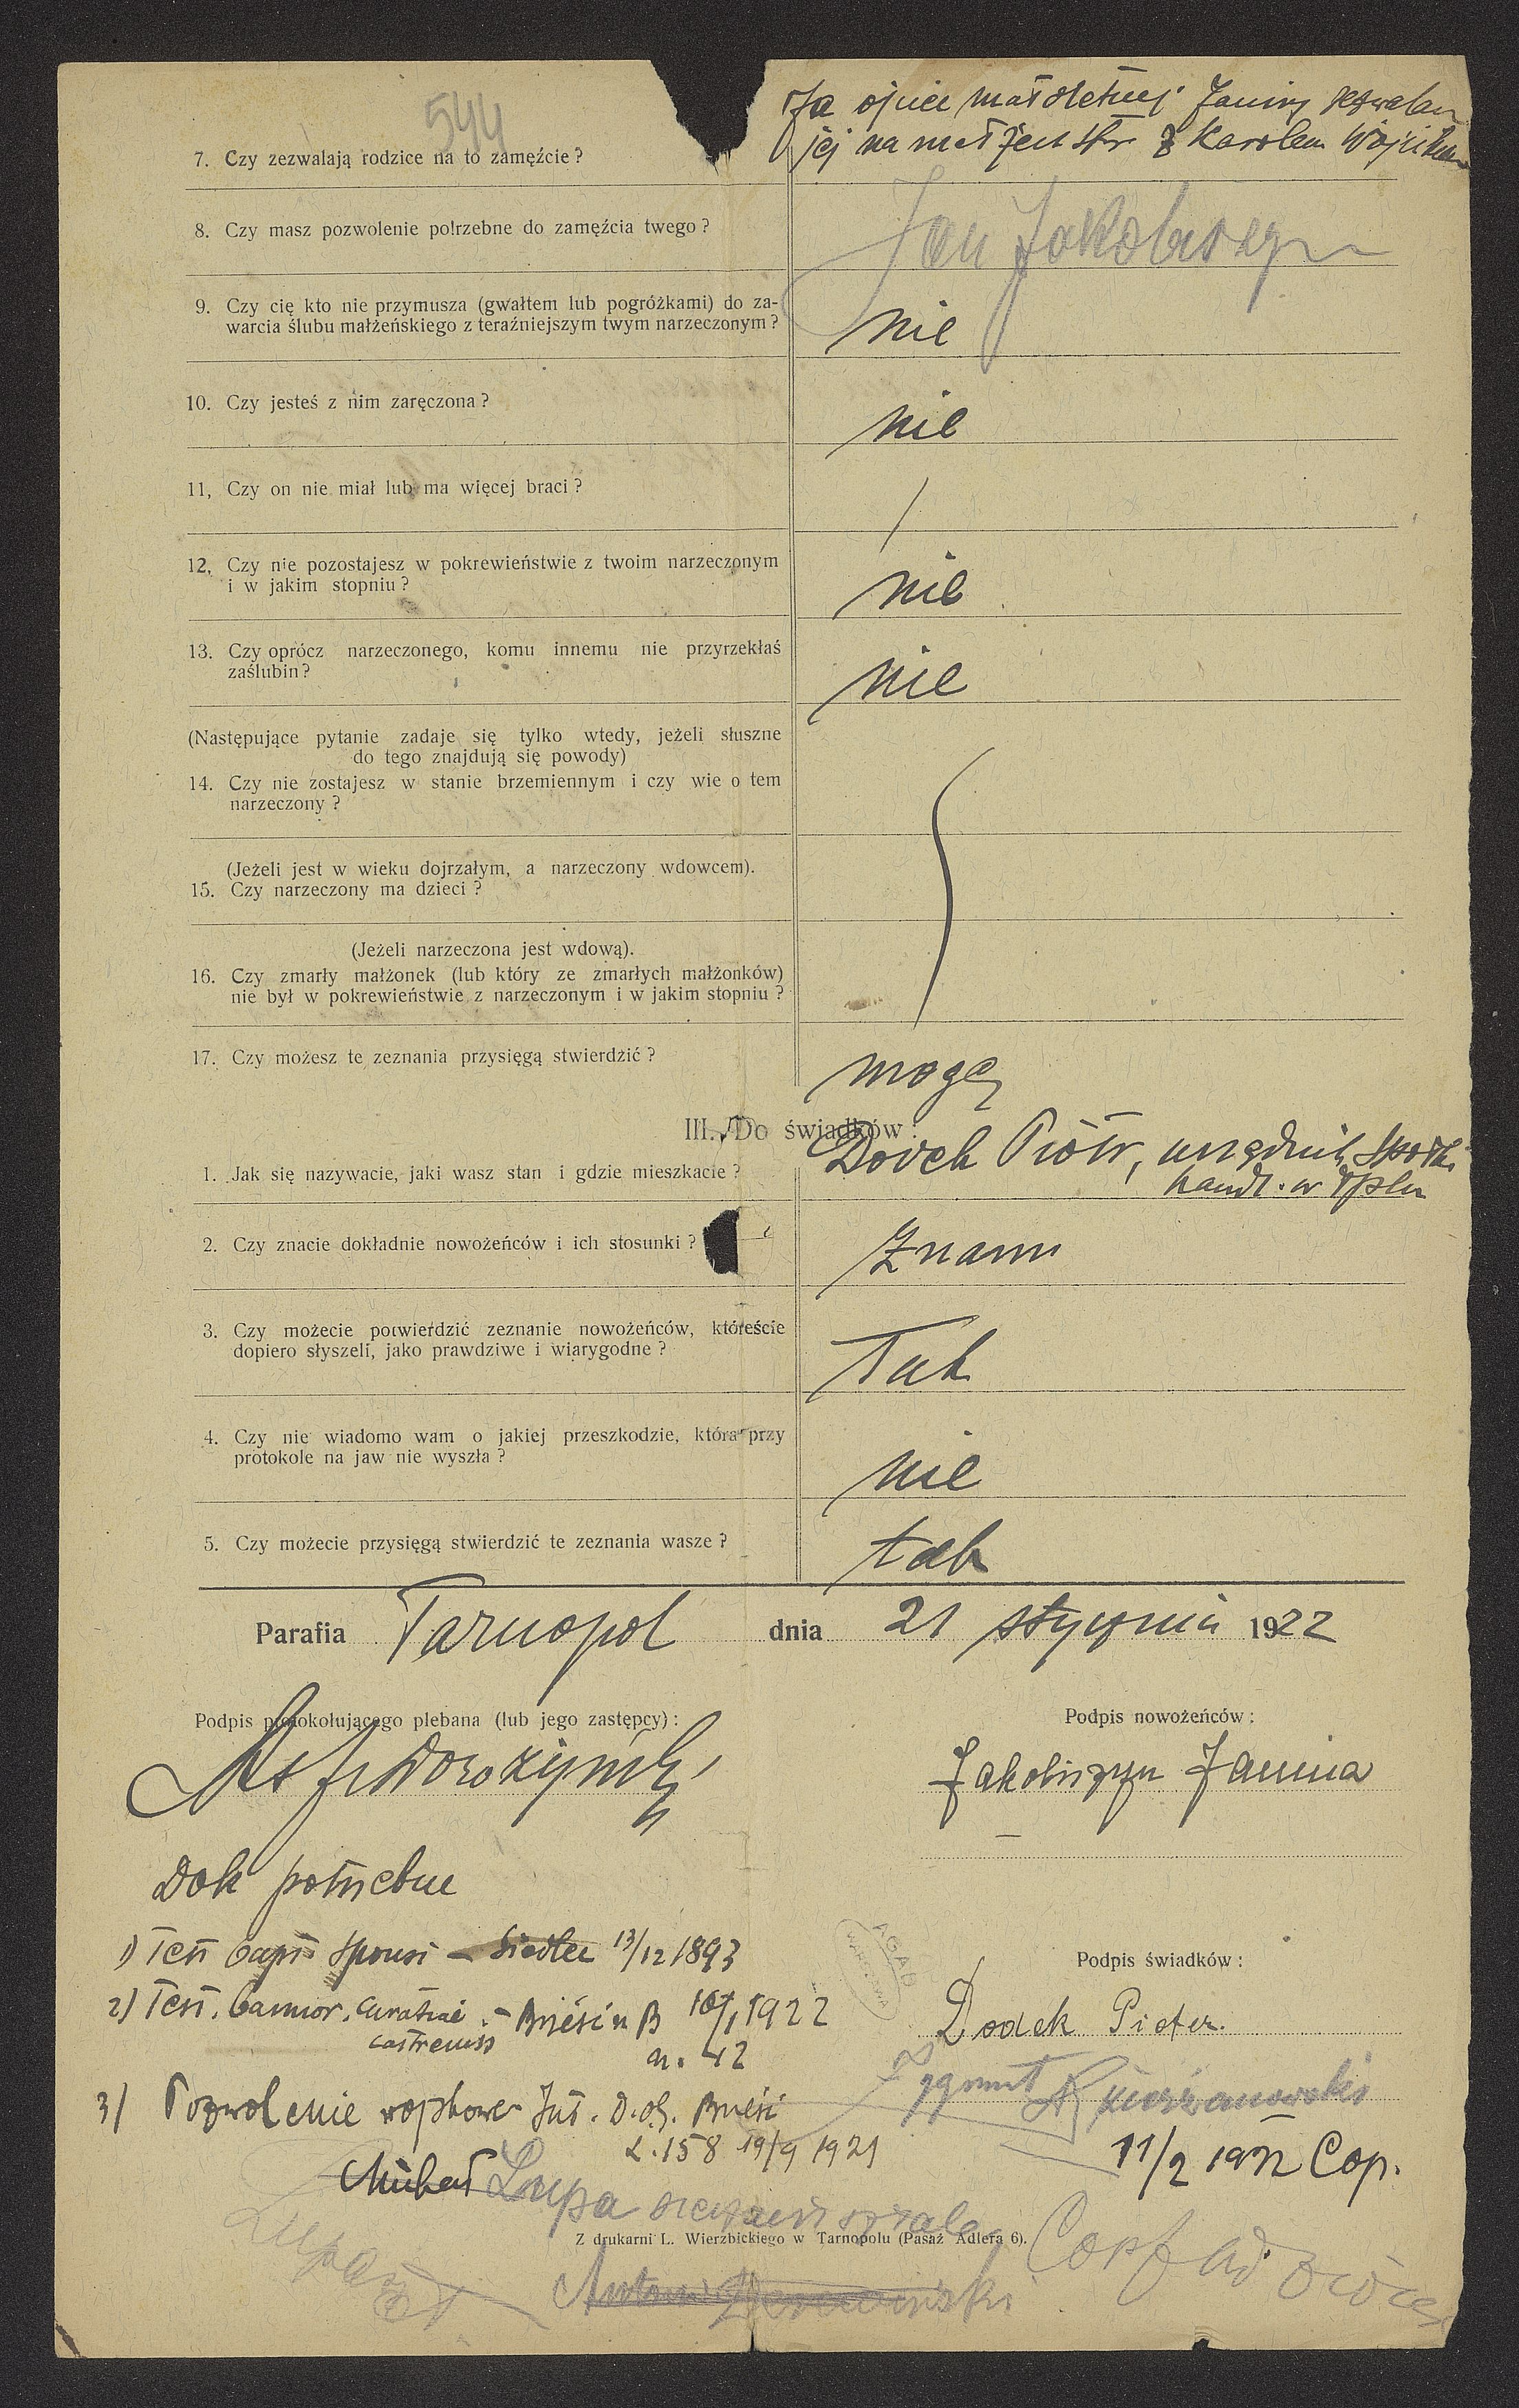 544
Ja ojciec małoletniej Janiny zezwalam
jej na małżeństw z Karolem Wójcikem
7. Czy zezwalają rodzice na to zamęźcie?
8. Czy masz pozwolenie potrzebne do zamęźcia twego?
Jan Jakobiszyn
9. Czy cię kto nie przymusza (gwałtem lub pogróżkami) do za-
warcia ślubu małżeńskiego z teraźniejszym twym narzeczonym?
nie
10. Czy jesteś z nim zaręczona?
nie
11, Czy on nie miał lub ma więcej braci?
/
12, Czy nie pozostajesz w pokrewieństwie z twoim narzeczonym
i w jakim stopniu?
nie
13. Czy oprócz narzeczonego, komu innemu nie przyrzekłaś
zaślubin?
nie
(Następujące pytanie zadaje się tylko wtedy, jeżeli słuszne
do tego znajdują się powody)
14. Czy nie zostajesz w stanie brzemiennym i czy wie o tem
narzeczony?
(Jeżeli jest w wieku dojrzałym, a narzeczony wdowcem).
15. Czy narzeczony ma dzieci?
(Jeżeli narzeczona jest wdową).
16. Czy zmarły małżonek (lub który ze zmarłych małżonków)
nie był w pokrewieństwie z narzeczonym i w jakim stopniu?
17. Czy możesz te zeznania przysięgą stwierdzić?
mogę
III. Do świadków:
1. Jak się nazywacie, jaki wasz stan i gdzie mieszkacie?
Piotr, urzędnik Spółki
handl. w Tplu
2. Czy znacie dokładnie nowożeńców i ich stosunki?
Znam
3. Czy możecie potwierdzić zeznanie nowożeńców, któreście
dopiero słyszeli, jako prawdziwe i wiarygodne?
Tak
4. Czy nie wiadomo wam o jakiej przeszkodzie, która przy
protokole na jaw nie wyszła?
nie
5. Czy możecie przysięgą stwierdzić te zeznania wasze?
tak
Parafia Tarnopol dnia 21 stycznia 1922
Podpis protokołującego plebana (lub jego zastępcy):
Podpis nowożeńców:
Jakobiszyn Janina
Dok potrzebne
1) Test bapt sponsi - Siedlce 13/12 1893
2) Test. bannor. curatiae - Brześć n B 1922
castrensis
n. 42
3) Pozwolenie wojskowe Int. D.O.G. Brześć
L. 158 19/9 1921
AGAD
WARSZAWA
Podpis świadków:
Dodek Pioter.
Zygmunt
11/2 1922 Cop.
Michał Łupa
Z drukarni L. Wierzbickiego w Tarnopolu (Pasaż Adlera 6).
Antoni